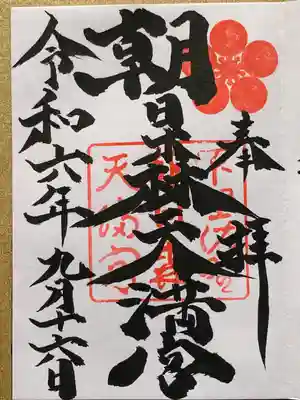 奉拝
朝日森天満宮
令和六年九月十六日
天満宮